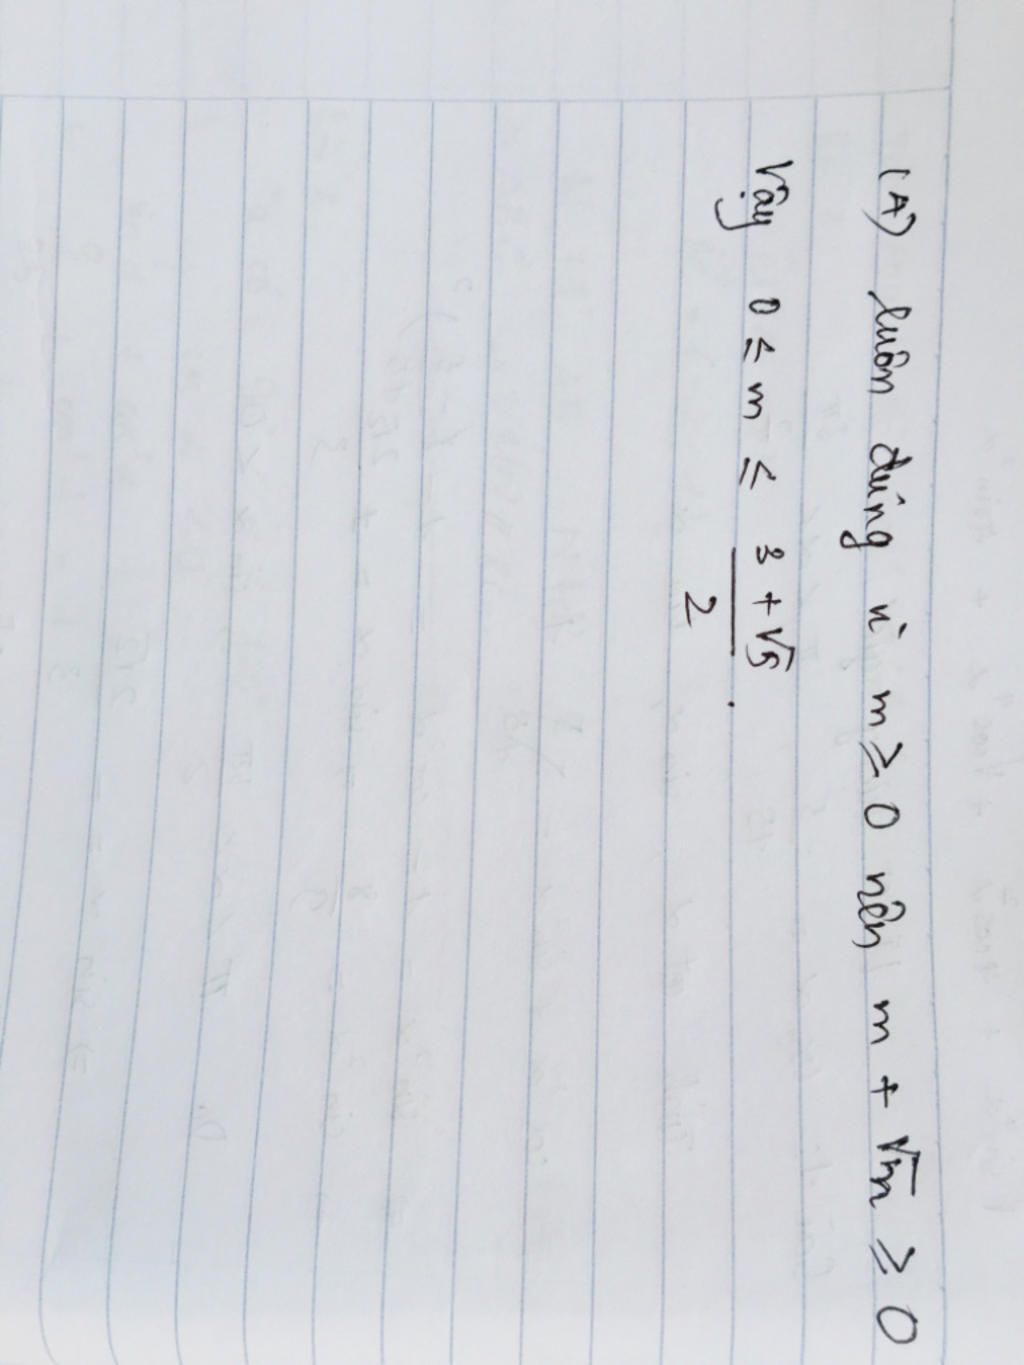 (A) luôn đúng vì m ≥ 0 nên m + √m ≥ 0
Vậy 0 ≤ m ≤ (3 + √5)/2 .